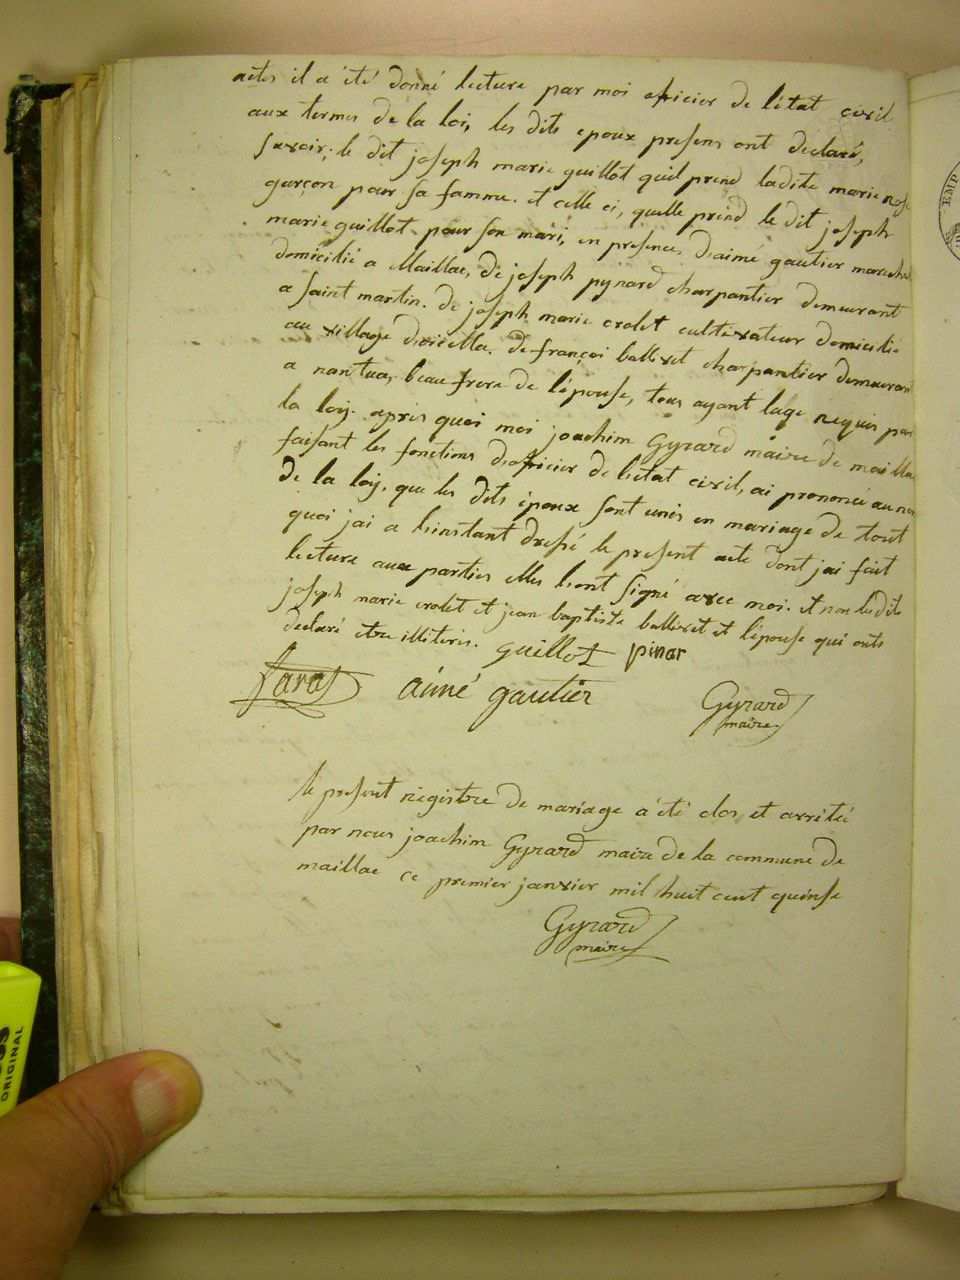 actes il a été donné lecture par moi officier de létat civil
aux termes de la loi, les dits epoux presens ont declaré,
savoir; le dit joseph marie guillot quil prend ladite marie rose
garçon pour sa famme. et celle ci, quelle prend le dit joseph
marie guillot pour son mari, en presence, daimé gautier marechal
domicilié a Maillac, de joseph pynard charpantier demeurant
a saint martin. de joseph marie crolet cultivateur domicilié
au village dericella. de françoi ballivet charpantier demeurant
a nantua, beau frere de lépouse, tous ayant lage requis par
la loy. apris quoi moi joachim Gyrard maire de maillac
faisant les fonctions dofficier de létat civil, ai prononcé au nom
de la loy. que les dits époux sont unis en mariage de tout
quoi jai a linstant dressé le present acte dont jai fait
lecture aux parties elles lont signé avec moi. et non ledit
joseph marie crolet et jean baptiste ballivet et lépouse qui onts
declaré etre illiteris. guillot pinar
aimé gautier Gyrard
maire
le present régistre de mariage a été clos et arrêteé
par nous joachim Gyrard maire de la commune de
maillac ce premier janvier mil huit cent quinse
Gyrard
maire
EMP
ORIGINAL